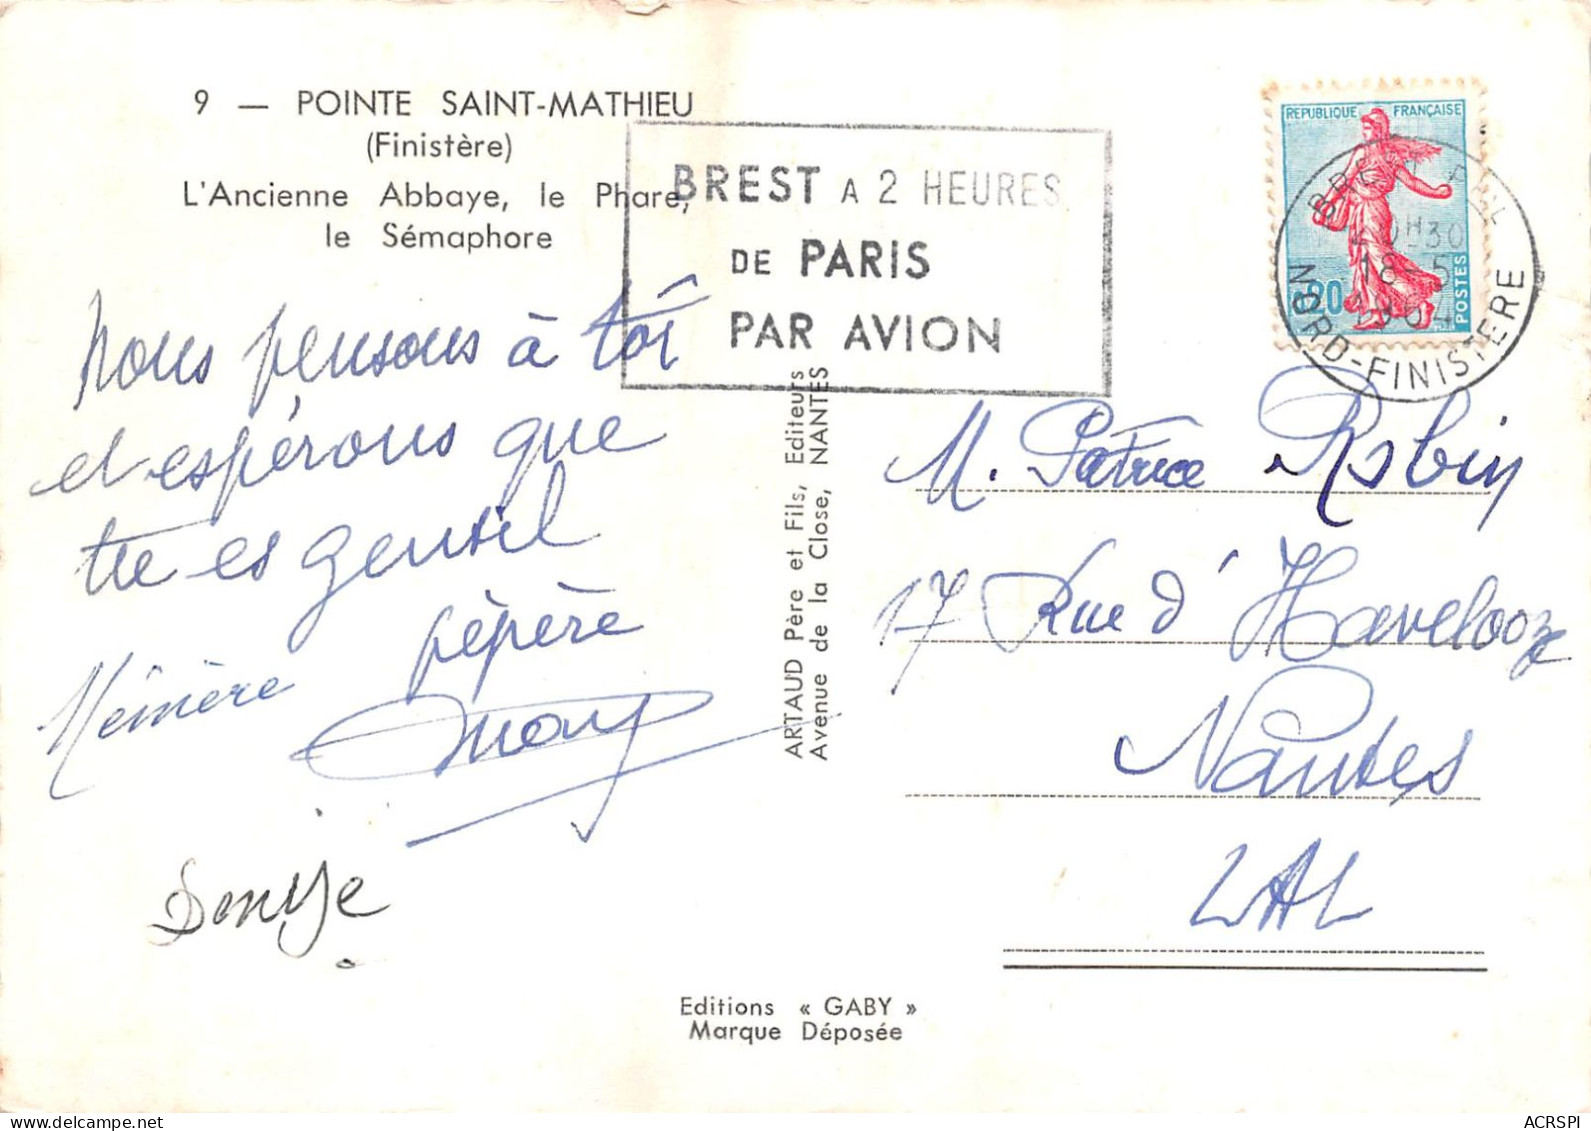 9 — POINTE SAINT-MATHIEU
(Finistère)
L'Ancienne Abbaye, le Phare,
le Sémaphore
BREST A 2 HEURES
DE PARIS
PAR AVION
REPUBLIQUE FRANÇAISE
0,20
POSTES
BREST
H30
18-5
NORD-FINISTERE
Nous pensons à toi
et espérons que
tu es gentil
pépère
Mémère
Denise
ARTAUD Père et Fils, Editeurs
Avenue de la Close, NANTES
M. Patrice Robin
17 Rue d'Havelooze
Nantes
L.A.
Editions « GABY »
Marque Déposée
ACRSPI